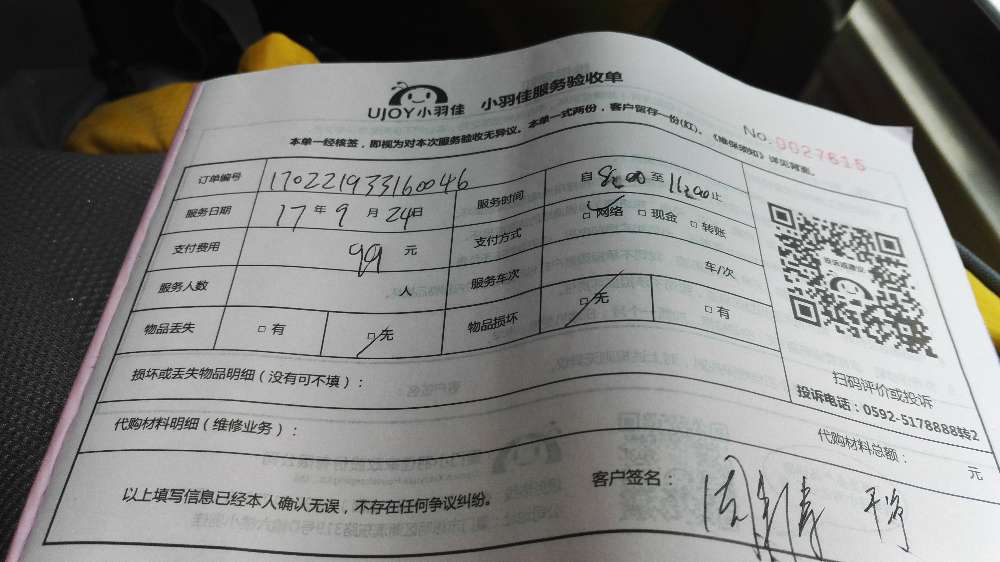 UJOY小羽佳 小羽佳服务验收单
No. 0027615
本单一经核签，即视为对本次服务验收无异议。本单一式两份，客户留存一份(红)。《维保须知》详见背面。
订单编号 170221933160046 服务时间 自 8:00 至 11:00 止
服务日期 17 年 9 月 24 日 支付方式 □网络 □现金 □转账
支付费用 99 元
服务人数 人 服务车次 车/次
物品丢失 □有 □无 物品损坏 □无 □有
投诉或建议
扫码评价或投诉
投诉电话：0592-5178888转2
损坏或丢失物品明细（没有可不填）：
代购材料明细（维修业务）： 代购材料总额： 元
以上填写信息已经本人确认无误，不存在任何争议纠纷。 客户签名：